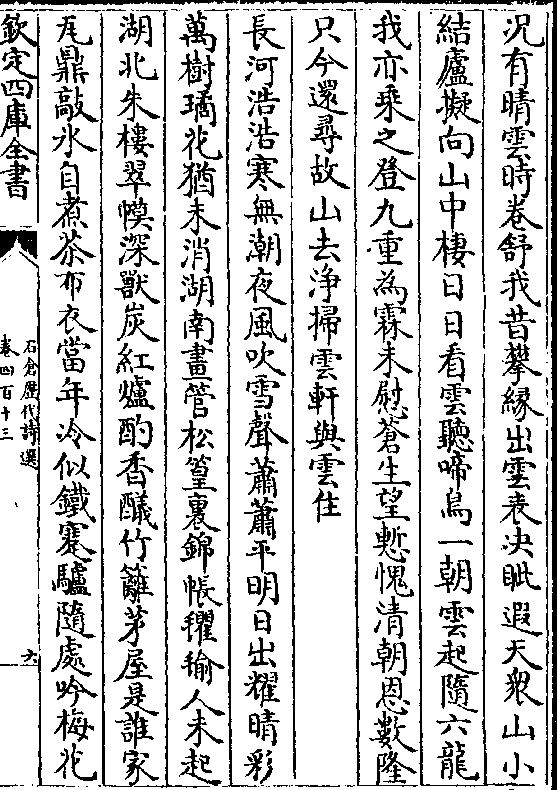 況有晴雲時卷舒我昔攀緣出雲表決眦遐天衆山小
結廬擬向山中棲日日看雲聽啼鳥一朝雲起隨六龍
我亦乘之登九重為霖未慰蒼生望慙愧清朝恩數隆
只今還尋故山去浄掃雲軒與雲住
長河浩浩寒無潮夜風吹雪聲蕭蕭平明日出耀晴彩
萬樹璚花猶未消湖南畫管松篁裏錦帳貂褕人未起
湖北朱樓翠幙深獸炭紅爐酌香醲竹籬茅屋是誰家
瓦鼎敲氷自煮茶布衣當年冷似鐵蹇驢隨處吟梅花
欽定四庫全書
石倉歴代詩選
卷四百十三
六